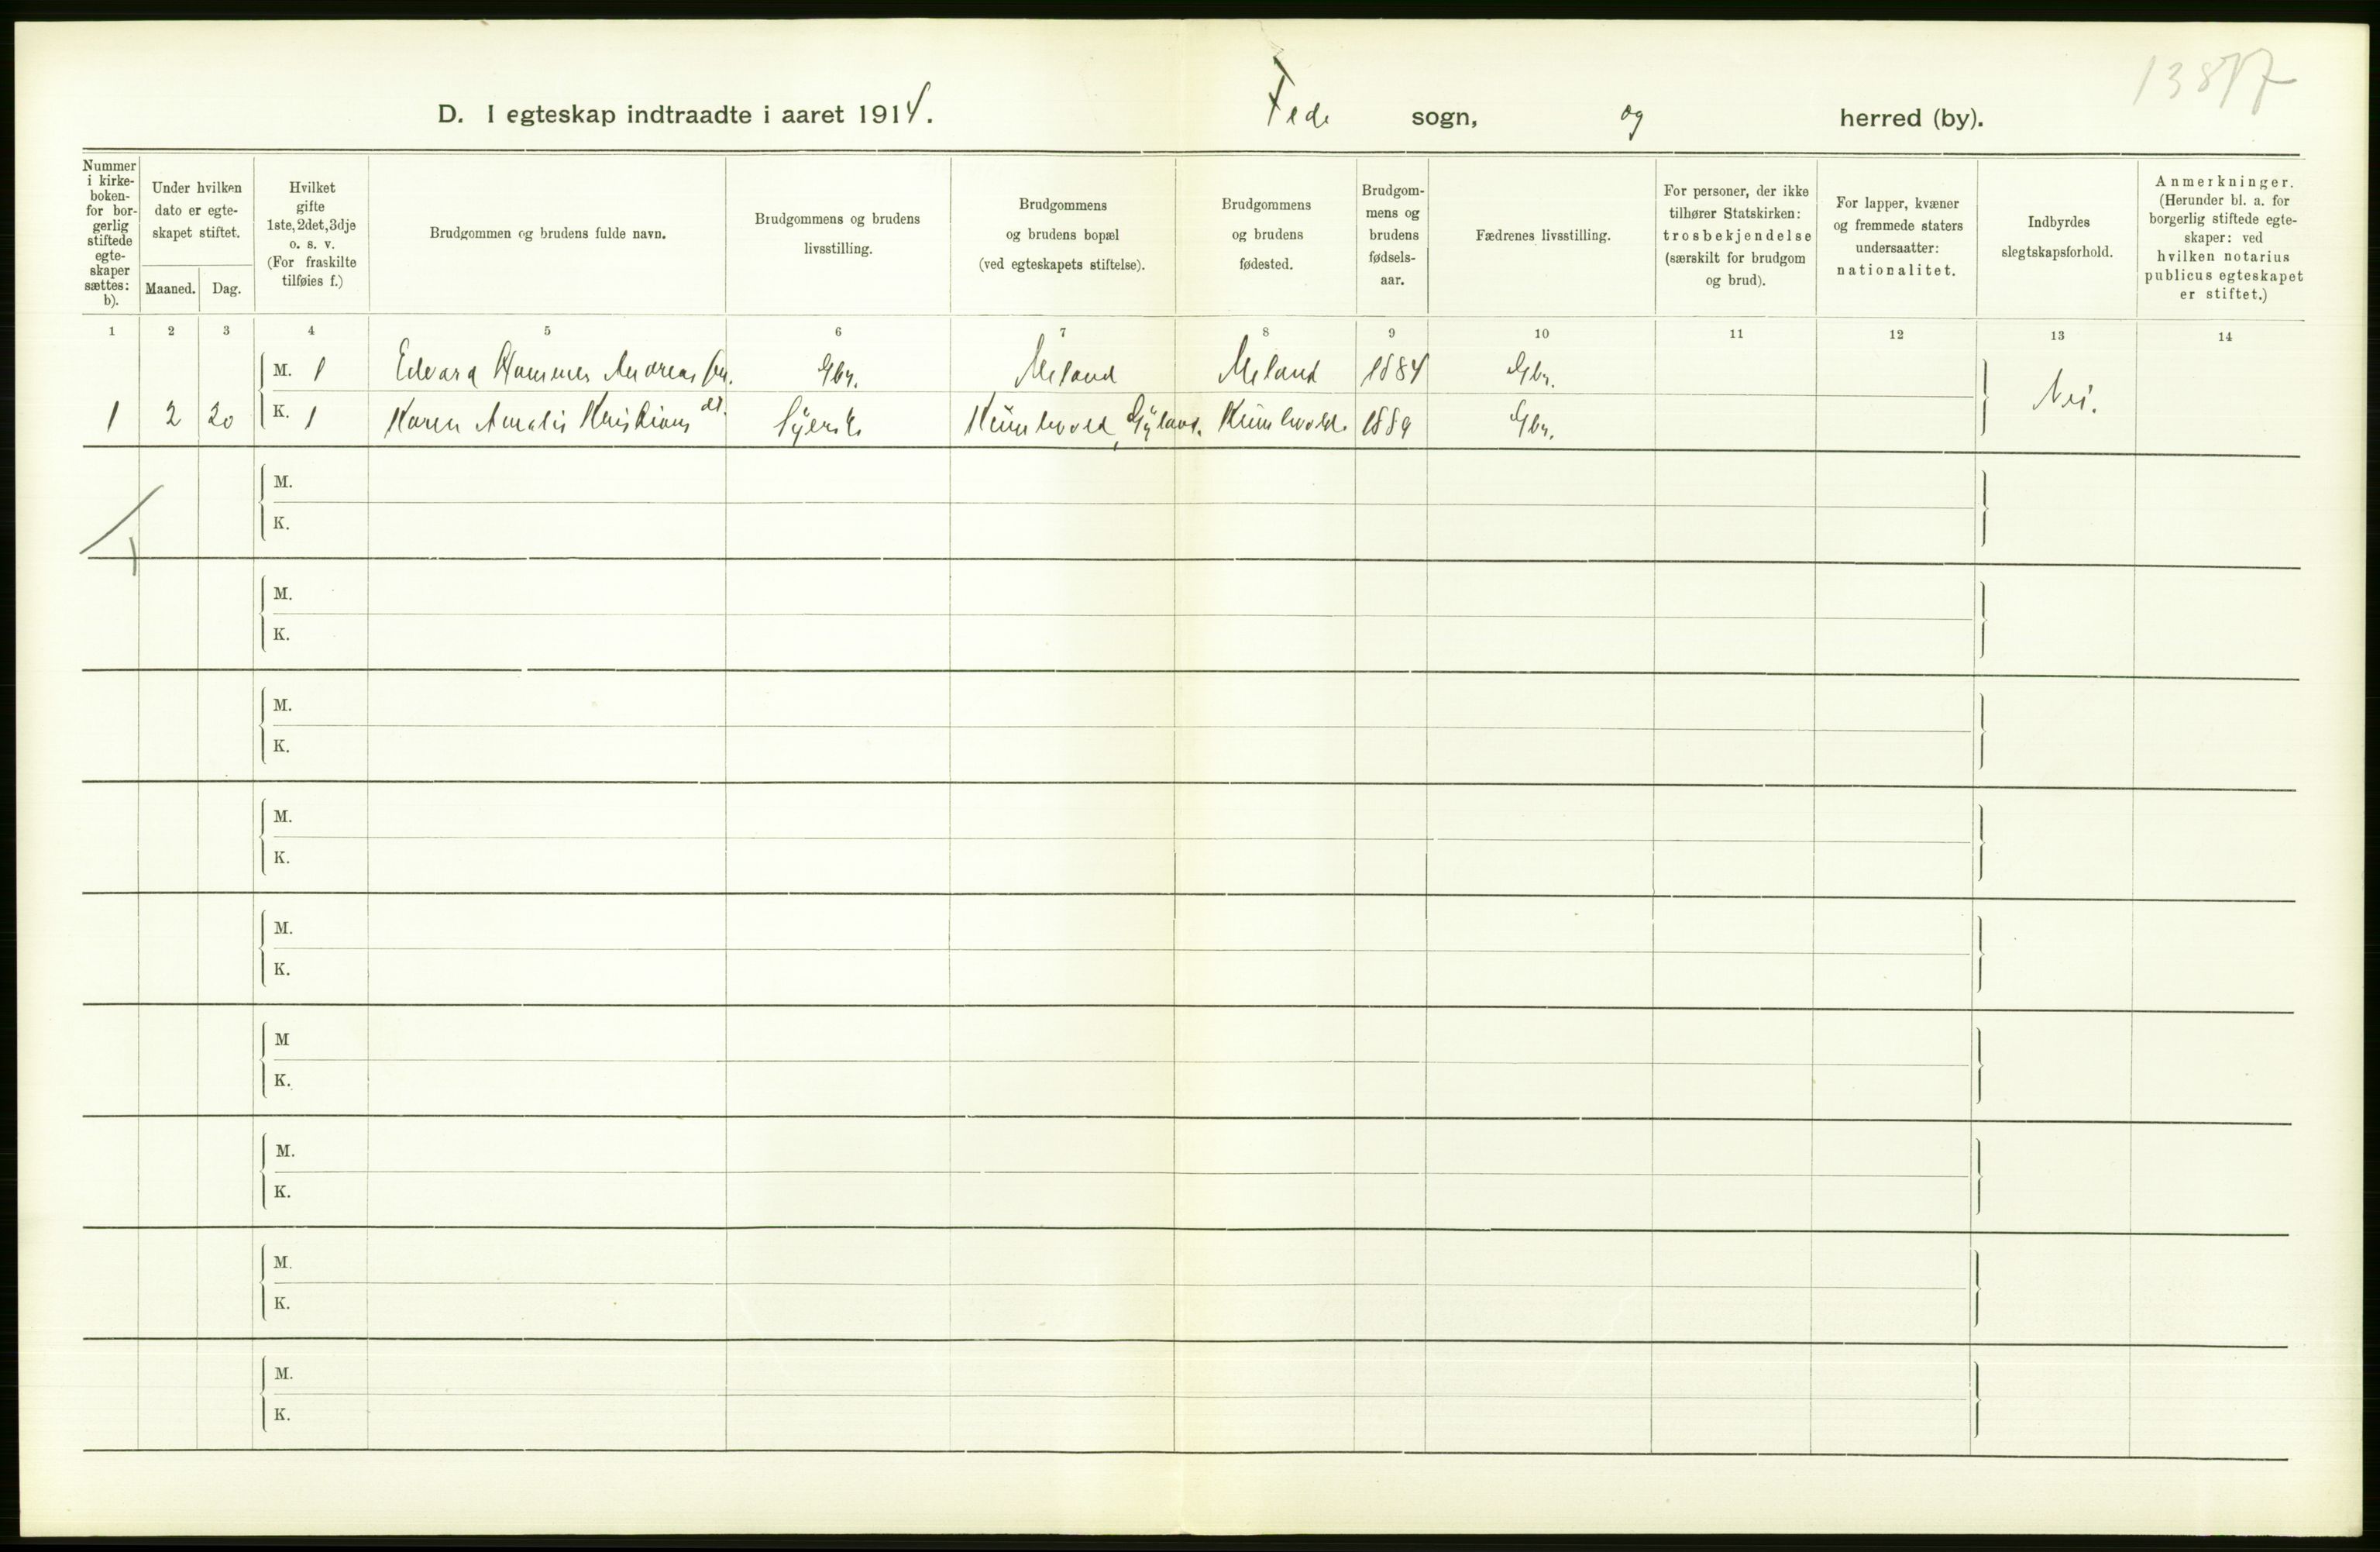 13817
D. I egteskap indtraadte i aaret 1914. Fede sogn, og herred (by).
Nummer i kirke- boken- for bor- gerlig stiftede egte- skaper sættes: b).
Under hvilken dato er egte- skapet stiftet.
Maaned. Dag.
Hvilket gifte 1ste, 2det, 3dje o. s. v. (For fraskilte tilføies f.)
Brudgommen og brudens fulde navn.
Brudgommens og brudens livsstilling.
Brudgommens og brudens bopæl (ved egteskapets stiftelse).
Brudgommens og brudens fødested.
Brudgom- mens og brudens fødsels- aar.
Fædrenes livsstilling.
For personer, der ikke tilhører Statskirken: trosbekjendelse (særskilt for brudgom og brud).
For lapper, kvæner og fremmede staters undersaatter: nationalitet.
Indbyrdes slegtskapsforhold.
Anmerkninger. (Herunder bl. a. for borgerlig stiftede egte- skaper: ved hvilken notarius publicus egteskapet er stiftet.)
1 2 3 4 5 6 7 8 9 10 11 12 13 14
M. 1 Edvard Hammer Andreas sn. Gbr. Meland Meland 1884 Gbr.
Nei.
1 2 20 K. 1 Karen Amalie Kristians dt. Syersk Kumlevold, Gyland. Kumlevold. 1889 Gbr.
M.
K.
M.
K.
M.
K.
M.
K.
M.
K.
M
K.
M.
K.
M.
K.
M.
K.